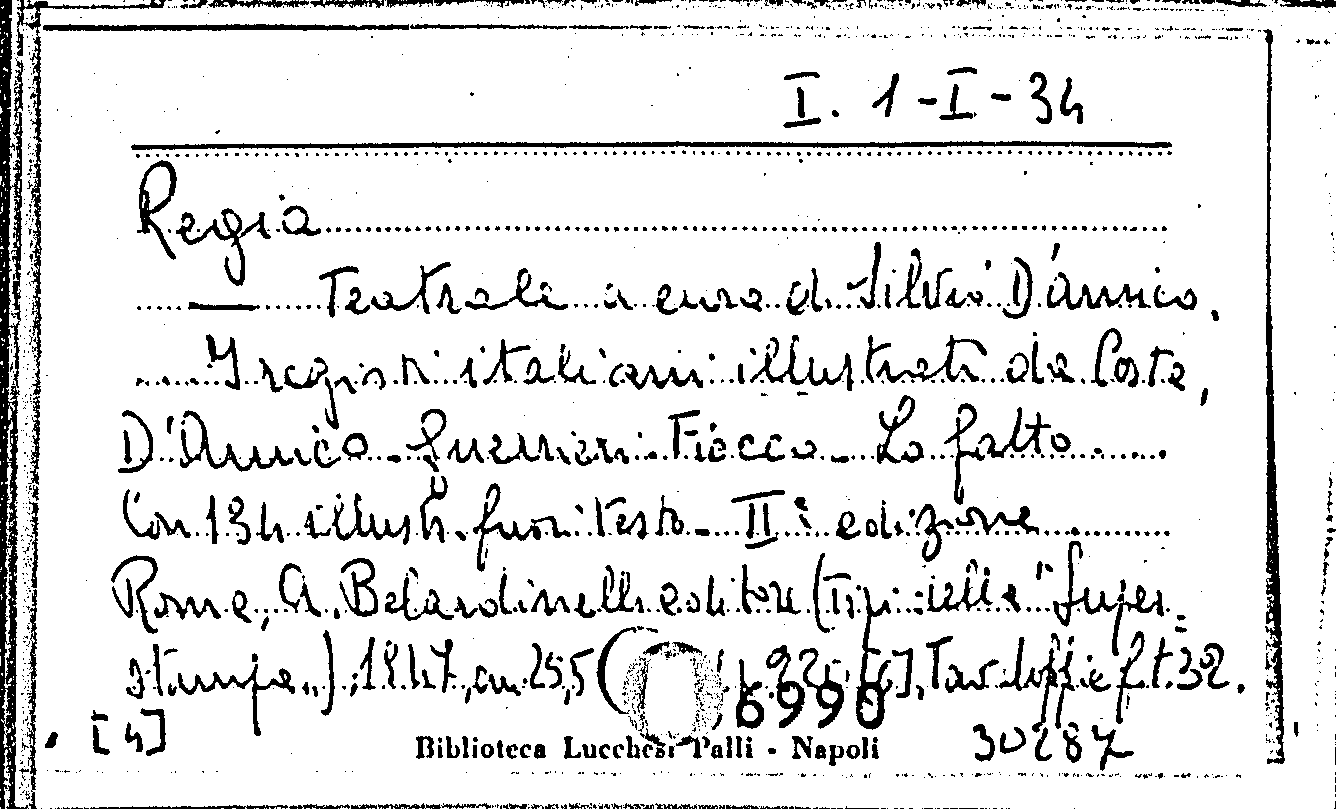 I. 1-I-34
Regia
— Teatrale a cura di Silvio D'Amico.
I registi italiani illustrati da Costa,
D'Amico - Guerrieri - Fiocco - Lo Galto
Con 134 illustr. fuori testo - IIª edizione
Roma, A. Belardinelli editore (Tip. della "Super-
stampa"), 1947, cm. 25,5 ( p. 225, [6], Tav. doppie f. t. 32.
6990
[4] Biblioteca Lucchesi Palli - Napoli 30287